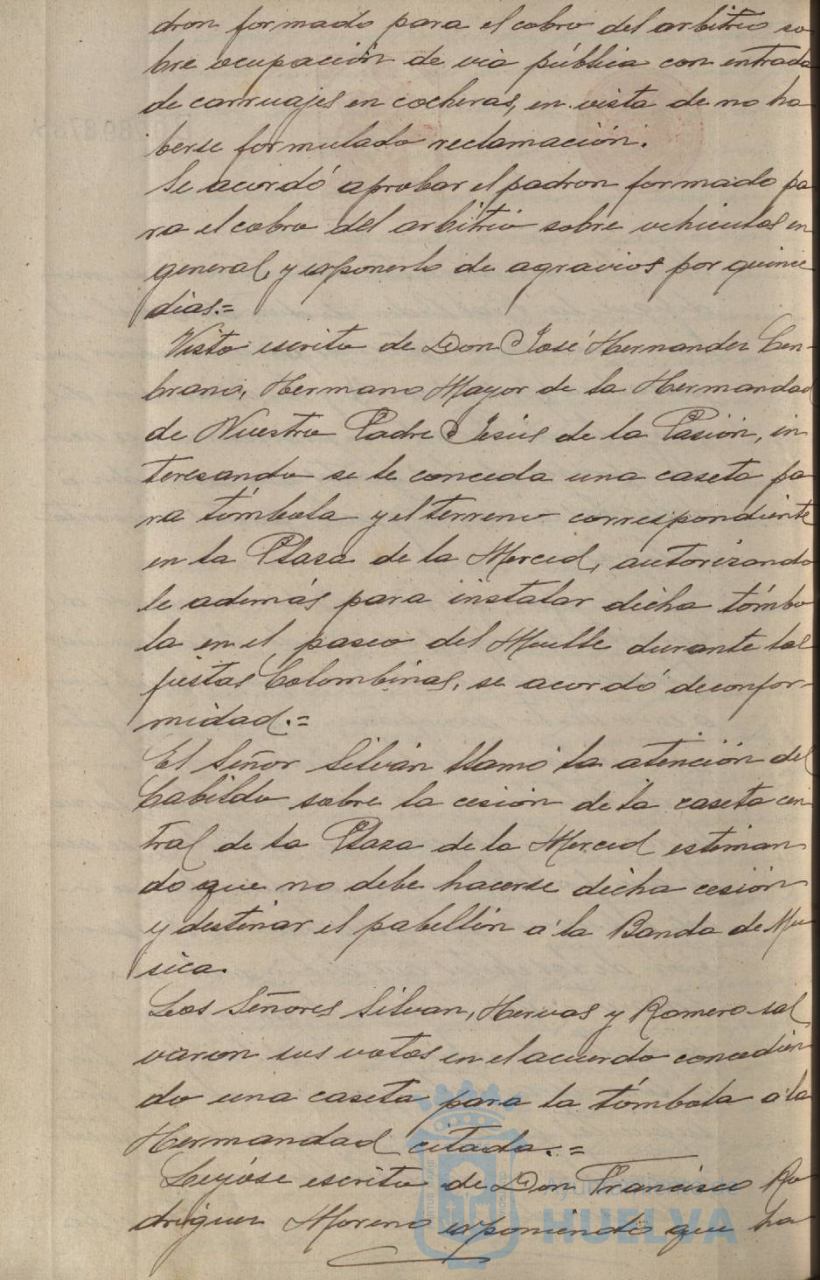 dron formado para el cobro del arbitrio so
bre ocupación de via pública con entrada
de carruajes en cocheras, en vista de no ha
berse formulado reclamación.
Se acordó aprobar el padron formado pa
ra el cobro del arbitrio sobre vehiculos en
general, y exponerlo de agravios por quince
dias.=
Visto escrito de Don José Hernandez Cen-
brano, Hermano Mayor de la Hermandad
de Nuestro Padre Jesús de la Pasión, in
teresando se le conceda una caseta pa
ra tómbola y el terreno correspondiente
en la Plaza de la Merced, autorizando
le además para instalar dicha tómbo
la en el paseo del Muelle durante las
fiestas Colombinas, se acordó de confor-
midad.=
El Señor Silván llamó la atención del
Cabildo sobre la cesión de la caseta cen
tral de la Plaza de la Merced estiman
do que no debe hacerse dicha cesión
y destinar el pabellón a la Banda de Mu
sica.
Los Señores Silvan, Hervas y Romero sal
varon sus votos en el acuerdo concedien
do una caseta para la tómbola a la
Hermandad citada.=
Leyóse escrito de Don Francisco Ro
driguez Moreno exponiendo que ha
HUELVA